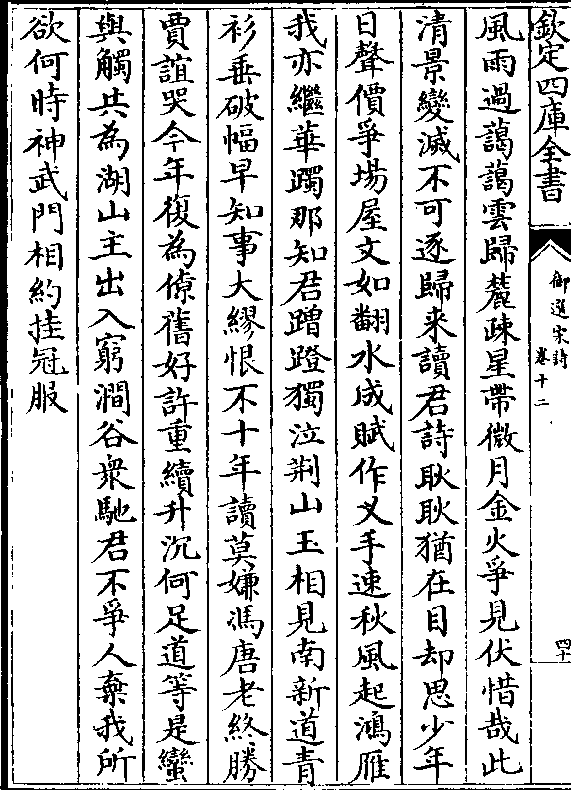 欽定四庫全書
御選宋詩
卷十二
四十
風雨過藹藹雲歸麓疎星帶微月金火爭見伏惜哉此
清景變滅不可逐歸來讀君詩耿耿猶在目却思少年
日聲價爭場屋文如翻水成賦作义手速秋風起鴻雁
我亦繼華躅那知君蹭蹬獨泣荆山玉相見南新道青
衫垂破幅早知事大繆恨不十年讀莫嫌馮唐老終勝
賈誼哭今年復為僚舊好許重續升沉何足道等是蠻
與觸共為湖山主出入窮澗谷衆馳君不爭人棄我所
欲何時神武門相約挂冠服